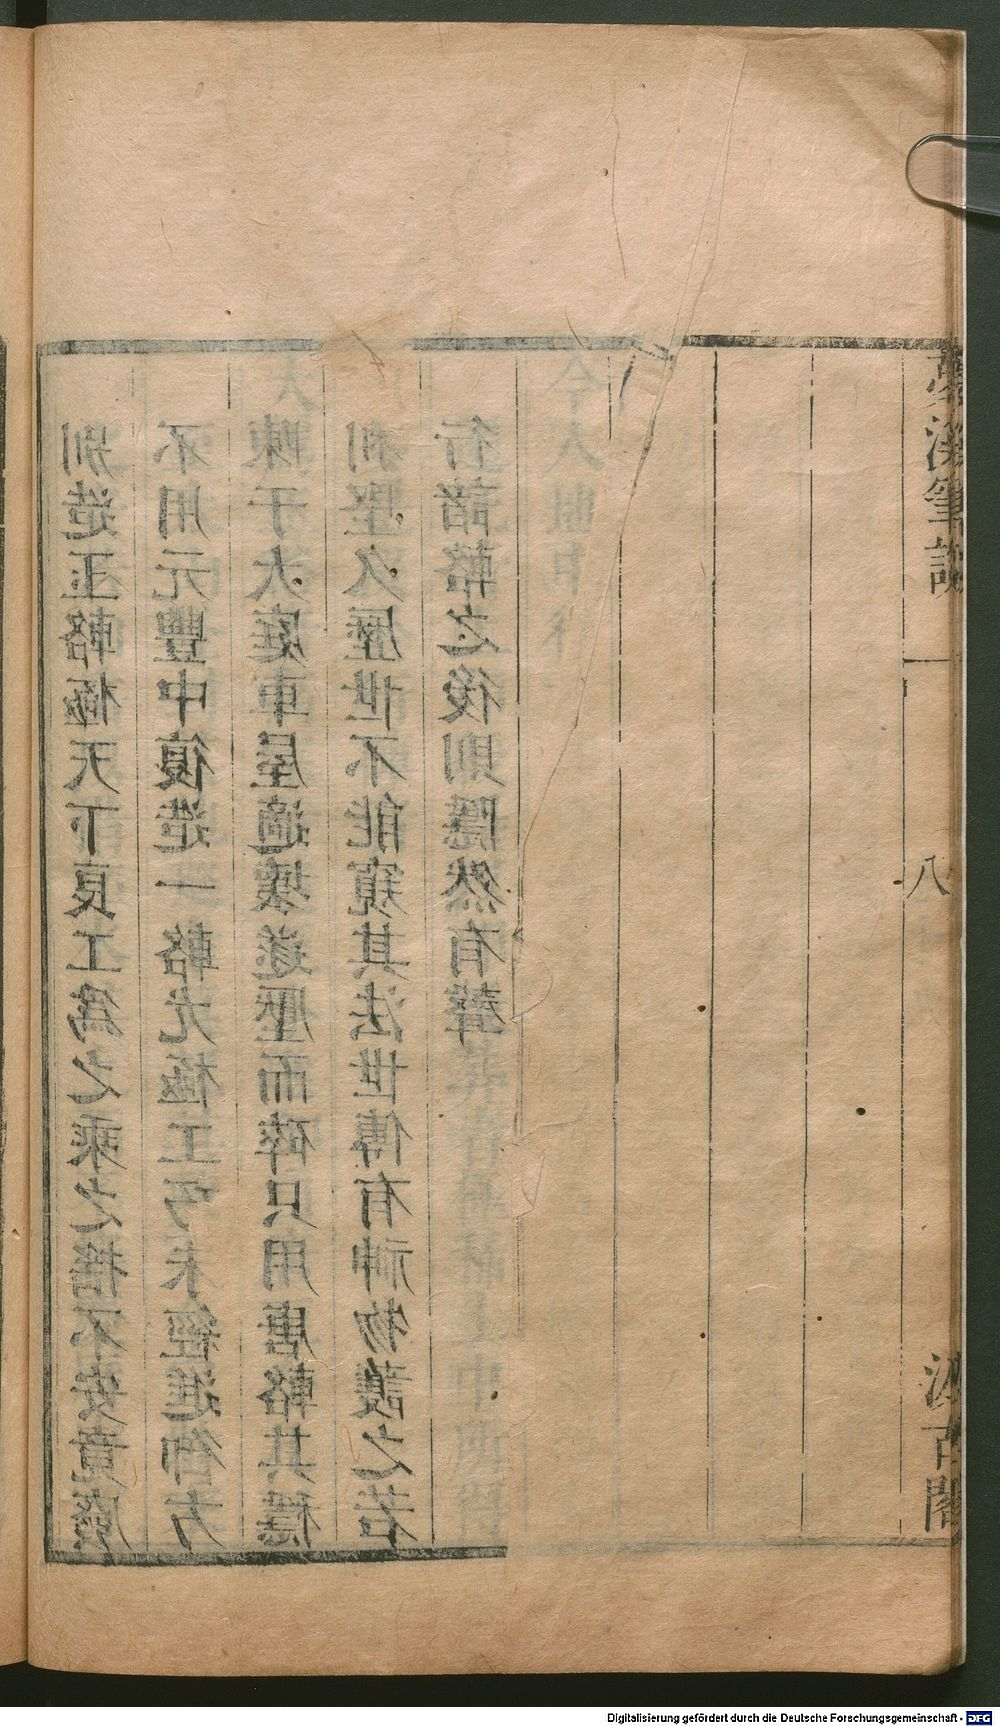 夢溪筆談 一 八 汲古閣
別造玉輅極天下良工爲之乘之搖不安竟廢
不用元豐中復造一輅尤極工巧未經進御方
陳于大庭車屋適壞遂壓而碎只用唐輅其穩
利堅久歷世不能窺其法世傳有神物護之若
行諸輅之後則隱然有聲
Digitalisierung gefördert durch die Deutsche Forschungsgemeinschaft - DFG